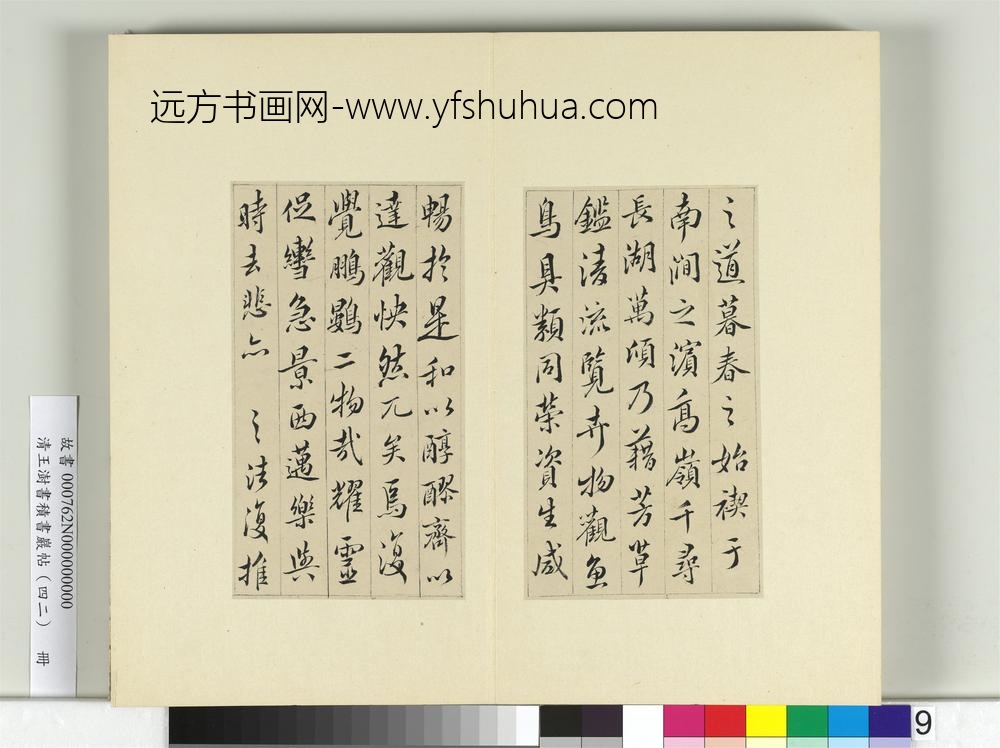 远方书画网-www.yfshuhua.com
之道暮春之始禊于
南澗之濱高嶺千尋
長湖萬頃乃藉芳草
鑑清流覽卉物觀魚
鳥具類同榮資生咸
暢於是和以醇醪齊以
達觀快然兀矣焉復
覺鵬鷃二物哉耀靈
促轡急景西邁樂與
時去悲亦 之法復推
故書 000762N000000000
清王澍書積書巖帖（四二） 冊
9